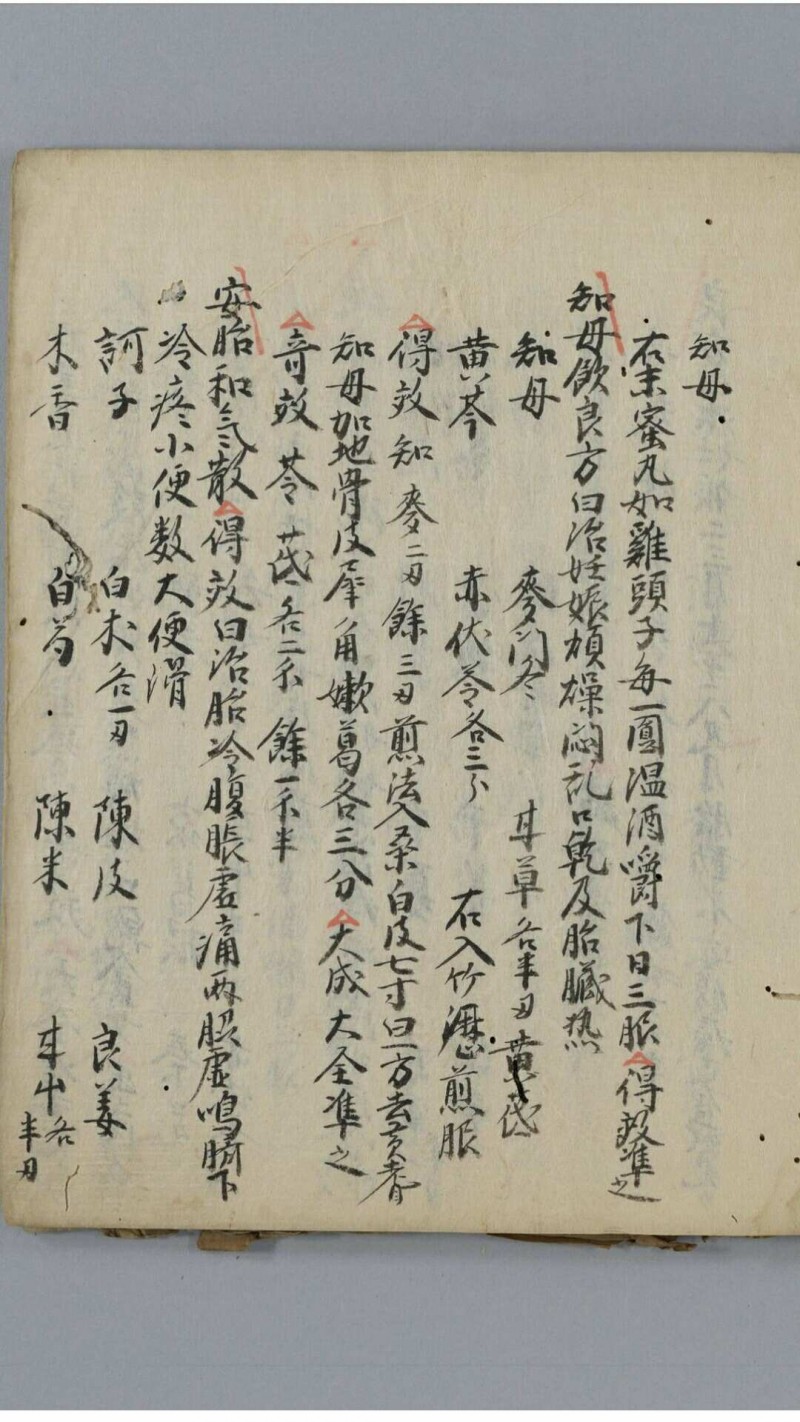 知母
右末蜜丸如雞頭子每一圓温酒嚼下日三服 得效準之
知母飲良方曰治妊娠煩燥悶乱口乾及胎臓热
知母 麥门冬 甘草各半刄 黄茋
黄芩 赤伏苓各三分 右入竹瀝煎服
得效知麥二刄餘三刄煎法入桑白皮七寸曰一方去黄
知母加地骨皮犀角嫩葛各三分 大成大全準之
奇效苓茋各二 餘一 半
安胎和氣散 得效曰治胎冷腹脹虚痛两脇虚鳴臍下
冷疼小便数大便滑
訶子 白朮各一刄 陳皮 良姜
木香 白芍 陳米 甘艸各半刄